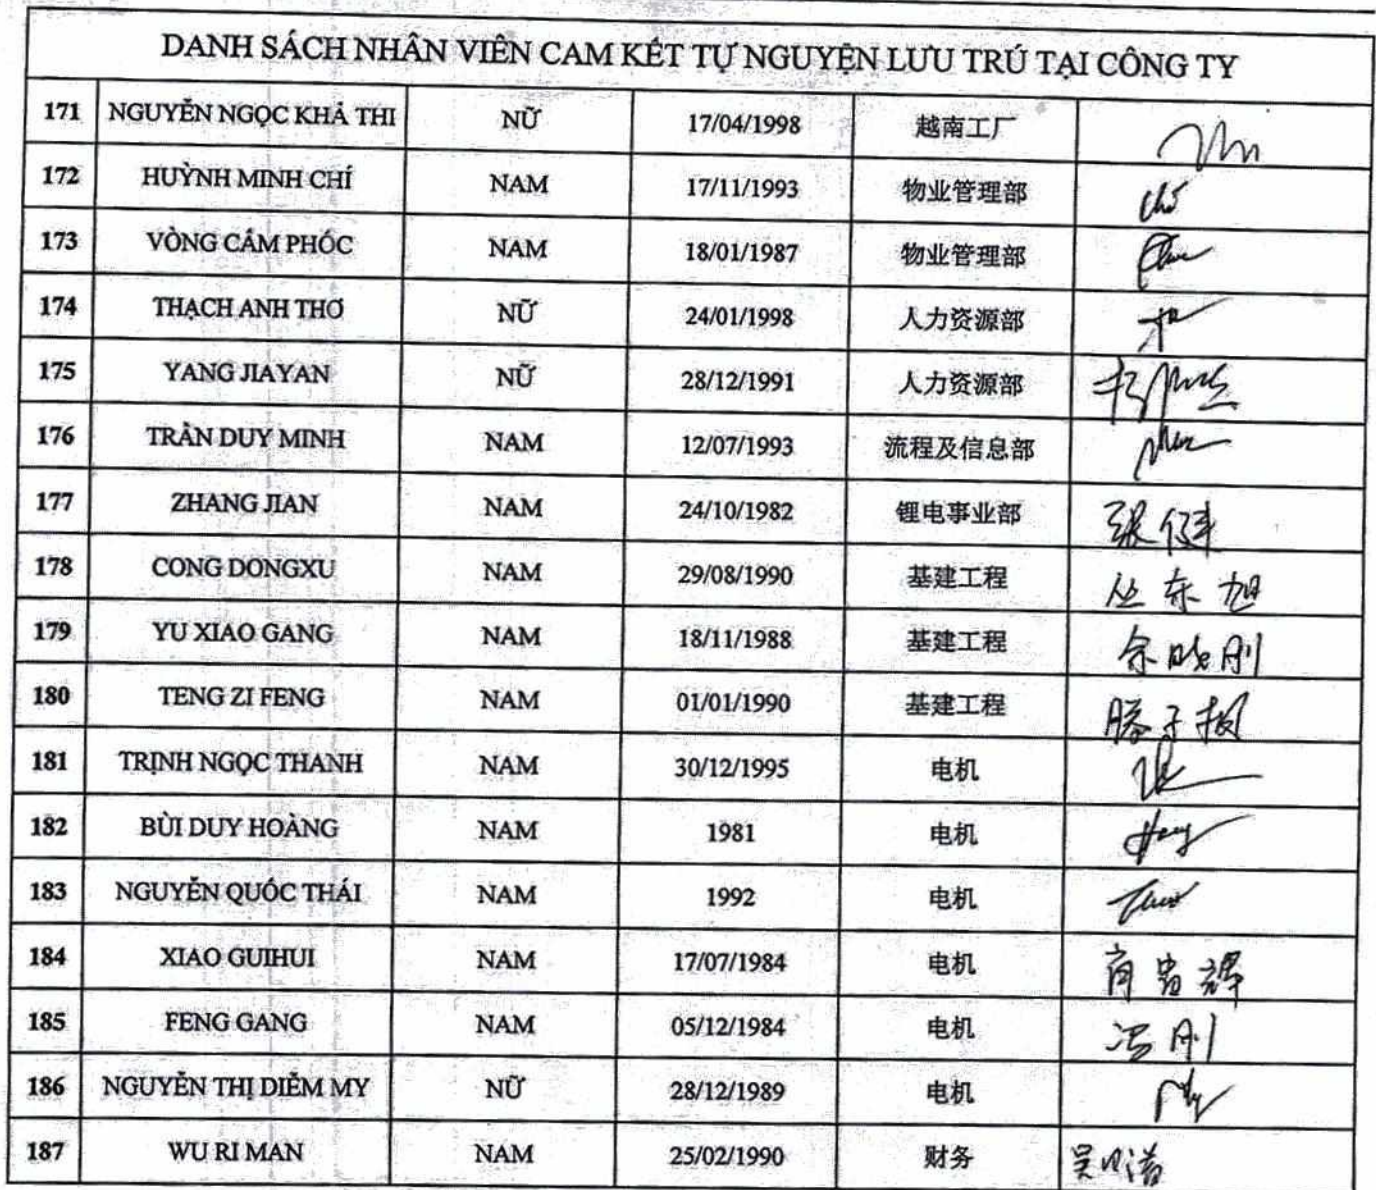 DANH SÁCH NHÂN VIÊN CAM KẾT TỰ NGUYỆN LƯU TRÚ TẠI CÔNG TY
171 NGUYỄN NGỌC KHẢ THI NỮ 17/04/1998 越南工厂
172 HUỲNH MINH CHÍ NAM 17/11/1993 物业管理部 Chí
173 VÒNG CẨM PHÓC NAM 18/01/1987 物业管理部
174 THẠCH ANH THƠ NỮ 24/01/1998 人力资源部
175 YANG JIAYAN NỮ 28/12/1991 人力资源部
176 TRẦN DUY MINH NAM 12/07/1993 流程及信息部
177 ZHANG JIAN NAM 24/10/1982 锂电事业部 张健
178 CONG DONGXU NAM 29/08/1990 基建工程 丛东旭
179 YU XIAO GANG NAM 18/11/1988 基建工程 余晓刚
180 TENG ZI FENG NAM 01/01/1990 基建工程 滕子枫
181 TRỊNH NGỌC THANH NAM 30/12/1995 电机
182 BÙI DUY HOÀNG NAM 1981 电机
183 NGUYỄN QUỐC THÁI NAM 1992 电机
184 XIAO GUIHUI NAM 17/07/1984 电机
185 FENG GANG NAM 05/12/1984 电机 冯刚
186 NGUYỄN THỊ DIỄM MY NỮ 28/12/1989 电机
187 WU RI MAN NAM 25/02/1990 财务